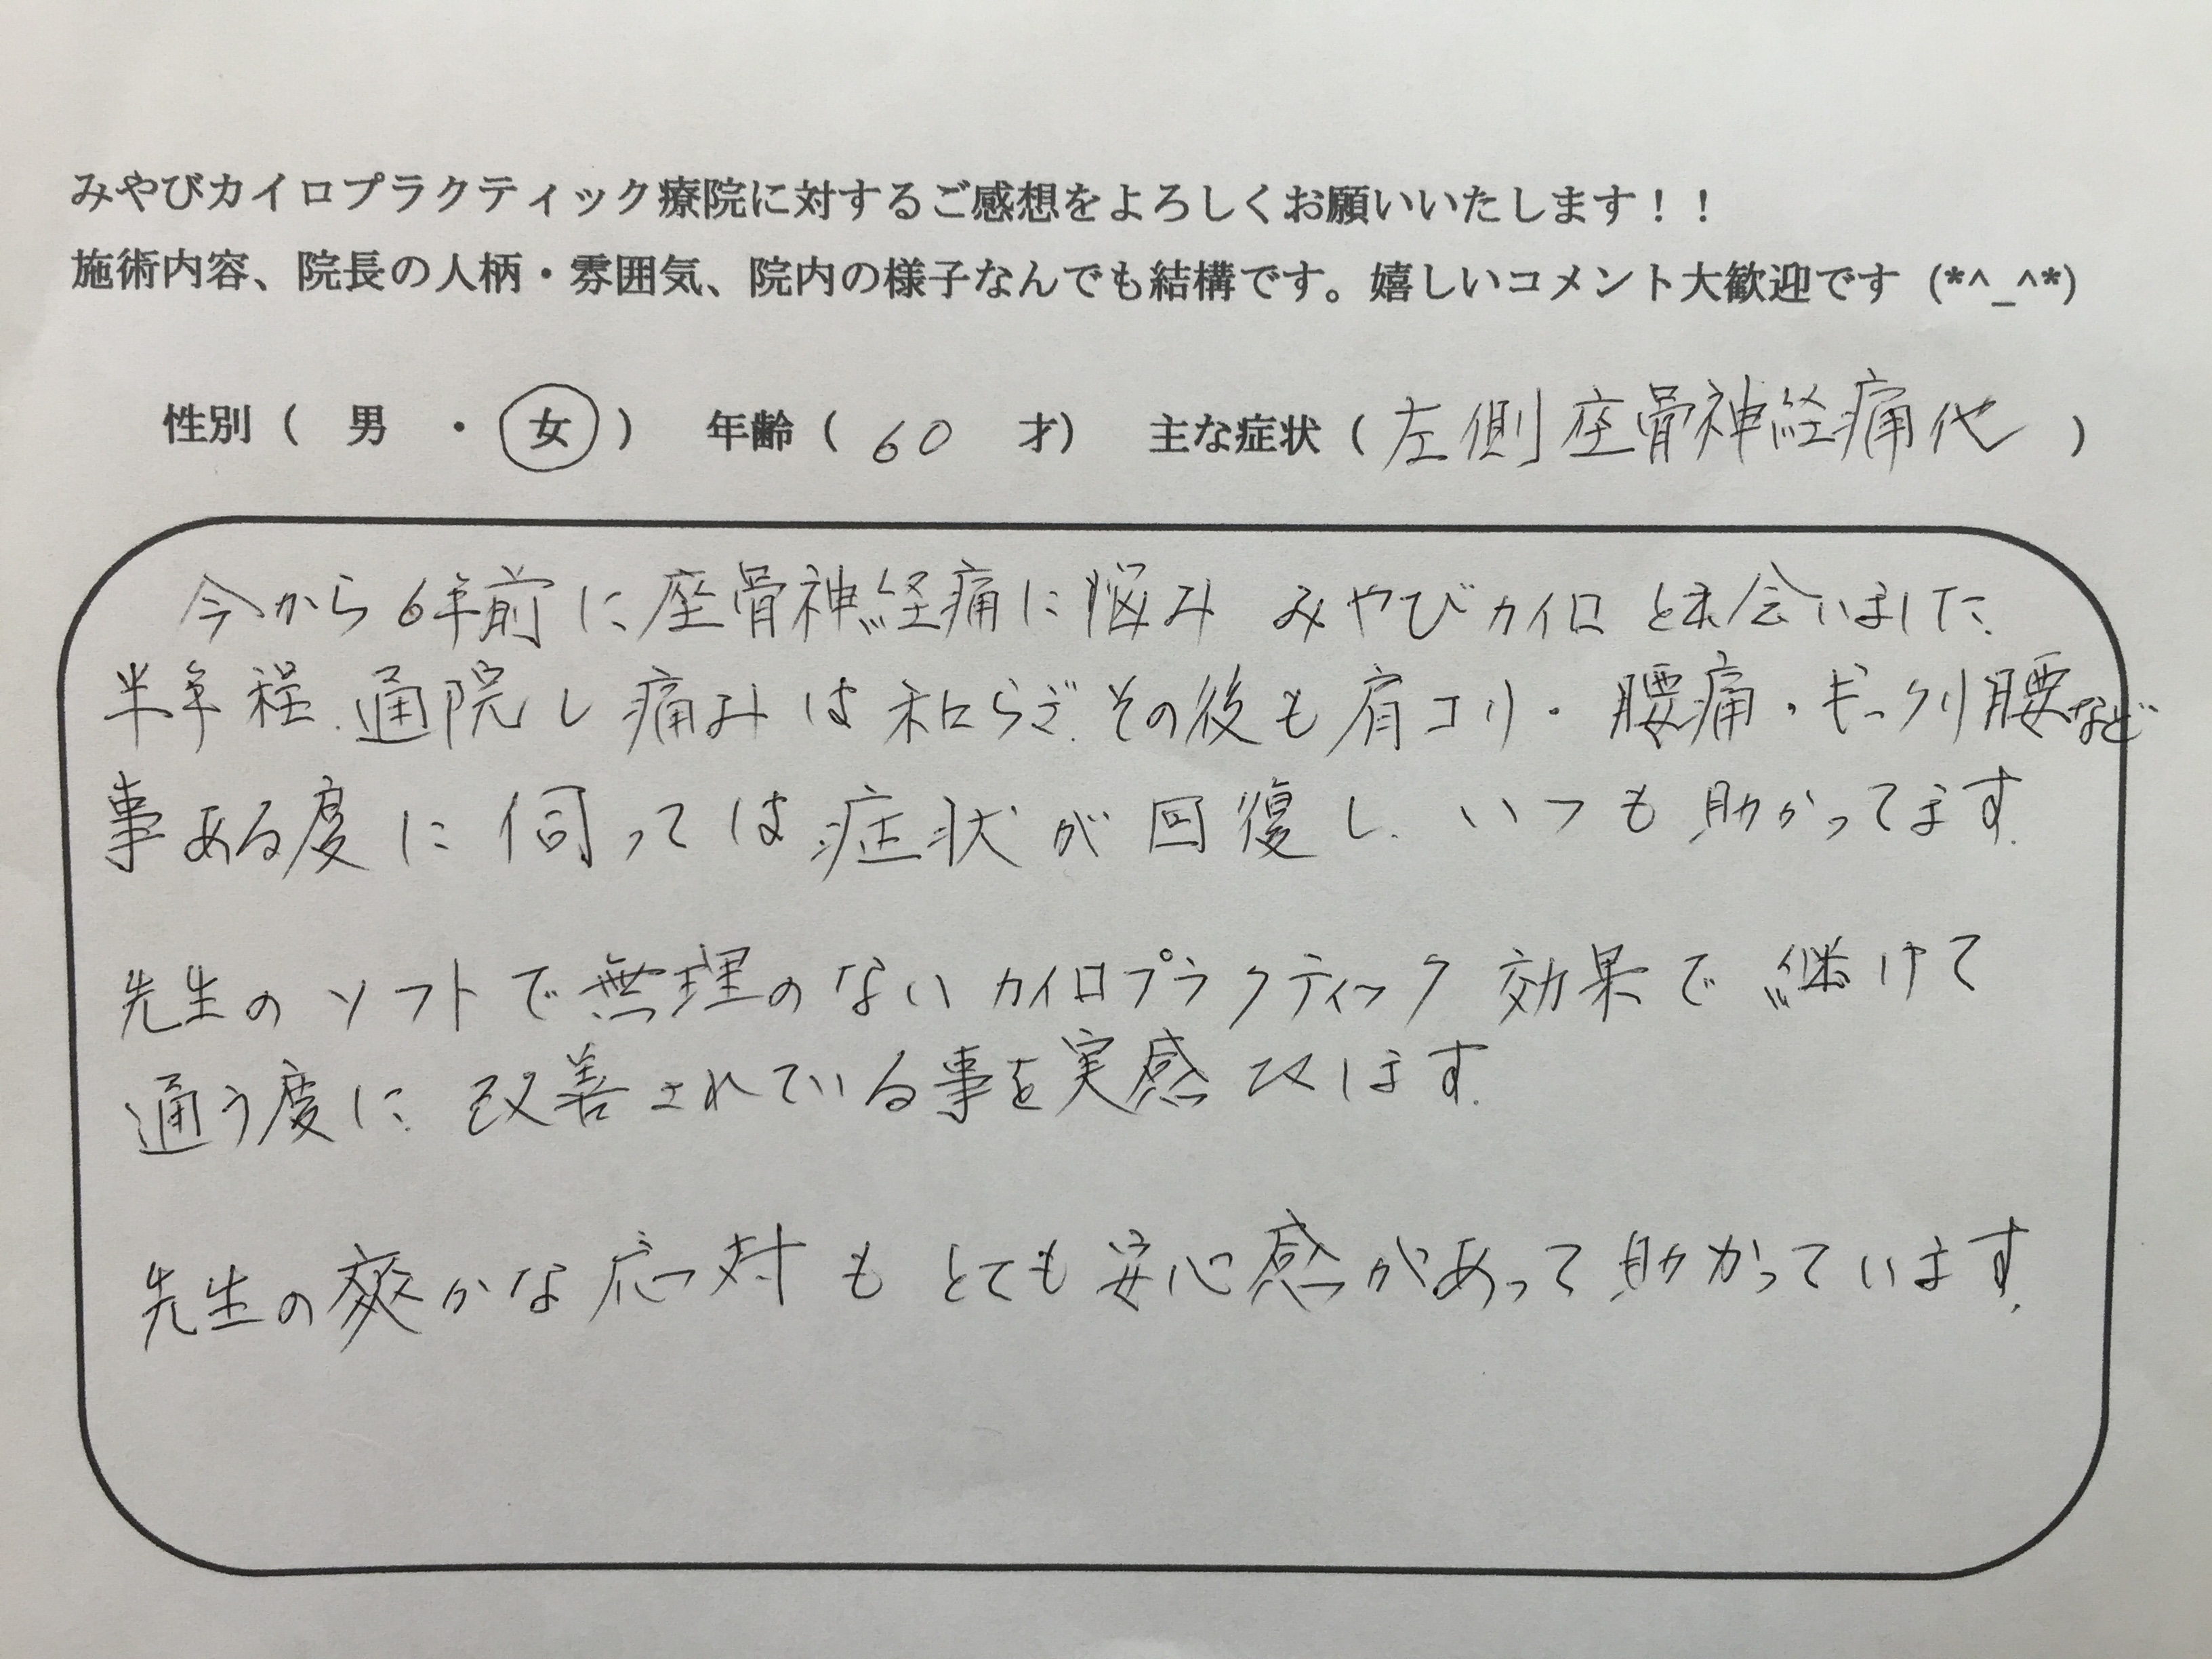 みやびカイロプラクティック療院に対するご感想をよろしくお願いいたします！！
施術内容、院長の人柄・雰囲気、院内の様子なんでも結構です。嬉しいコメント大歓迎です (*^_^*)
性別（ 男 ・ 女 ） 年齢（ 60 才） 主な症状（ 左側座骨神経痛他 ）
今から6年前に座骨神経痛に悩み みやびカイロと出会いました
半年程、通院し痛みは和らぎ、その後も肩コリ・腰痛・ギックリ腰など
事ある度に伺っては症状が回復し、いつも助かってます。
先生のソフトで無理のないカイロプラクティック効果で継けて
通う度に改善されている事を実感致します。
先生の爽かな応対もとても安心感があって助かっています。